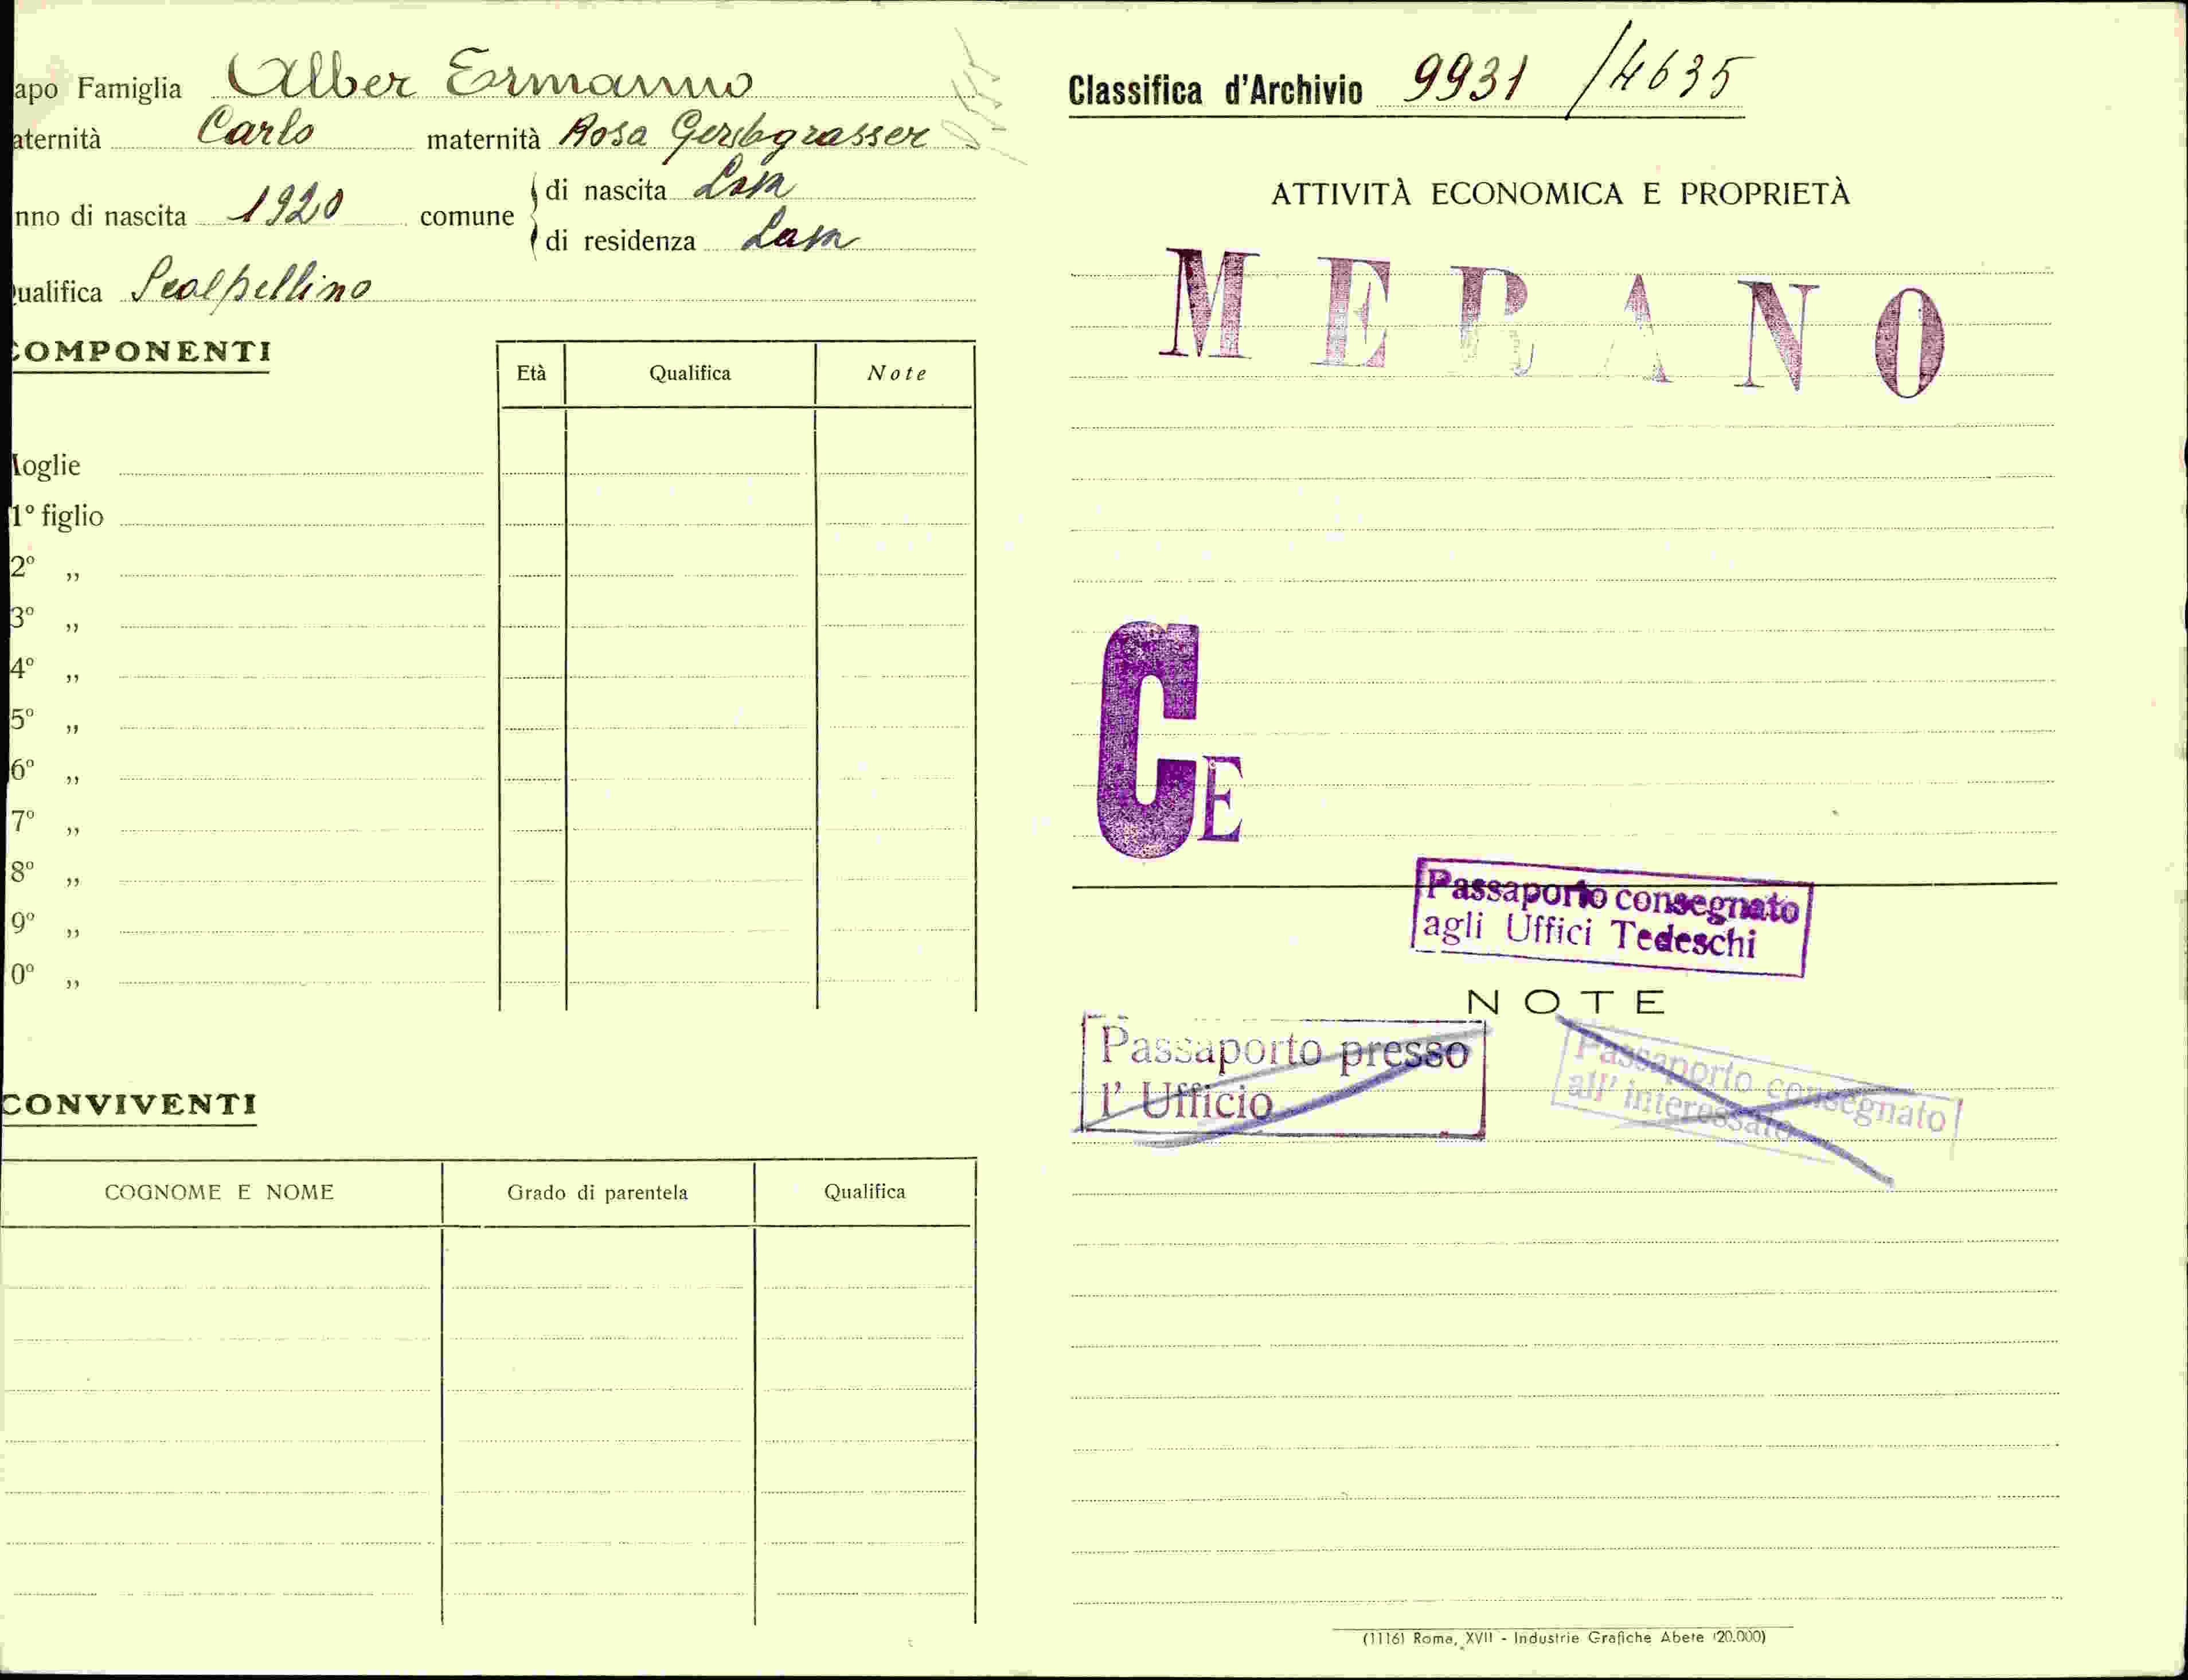 apo Famiglia Alber Ermanno
aternità Carlo maternità Rosa Gerstgrasser
nno di nascita 1920 comune di nascita Lasa
di residenza Lasa
ualifica Scalpellino
COMPONENTI
Età Qualifica Note
Moglie
1º figlio
2º ,,
3º ,,
4º ,,
5º ,,
6º ,,
7º ,,
8º ,,
9º ,,
0º ,,
CONVIVENTI
COGNOME E NOME Grado di parentela Qualifica
Classifica d'Archivio 9931 /4635
ATTIVITÀ ECONOMICA E PROPRIETÀ
MERANO
CE
Passaporto consegnato
agli Uffici Tedeschi
NOTE
Passaporto presso
l' Ufficio
Passaporto consegnato
all' interessato
(1116) Roma, XVII - Industrie Grafiche Abete (20.000)